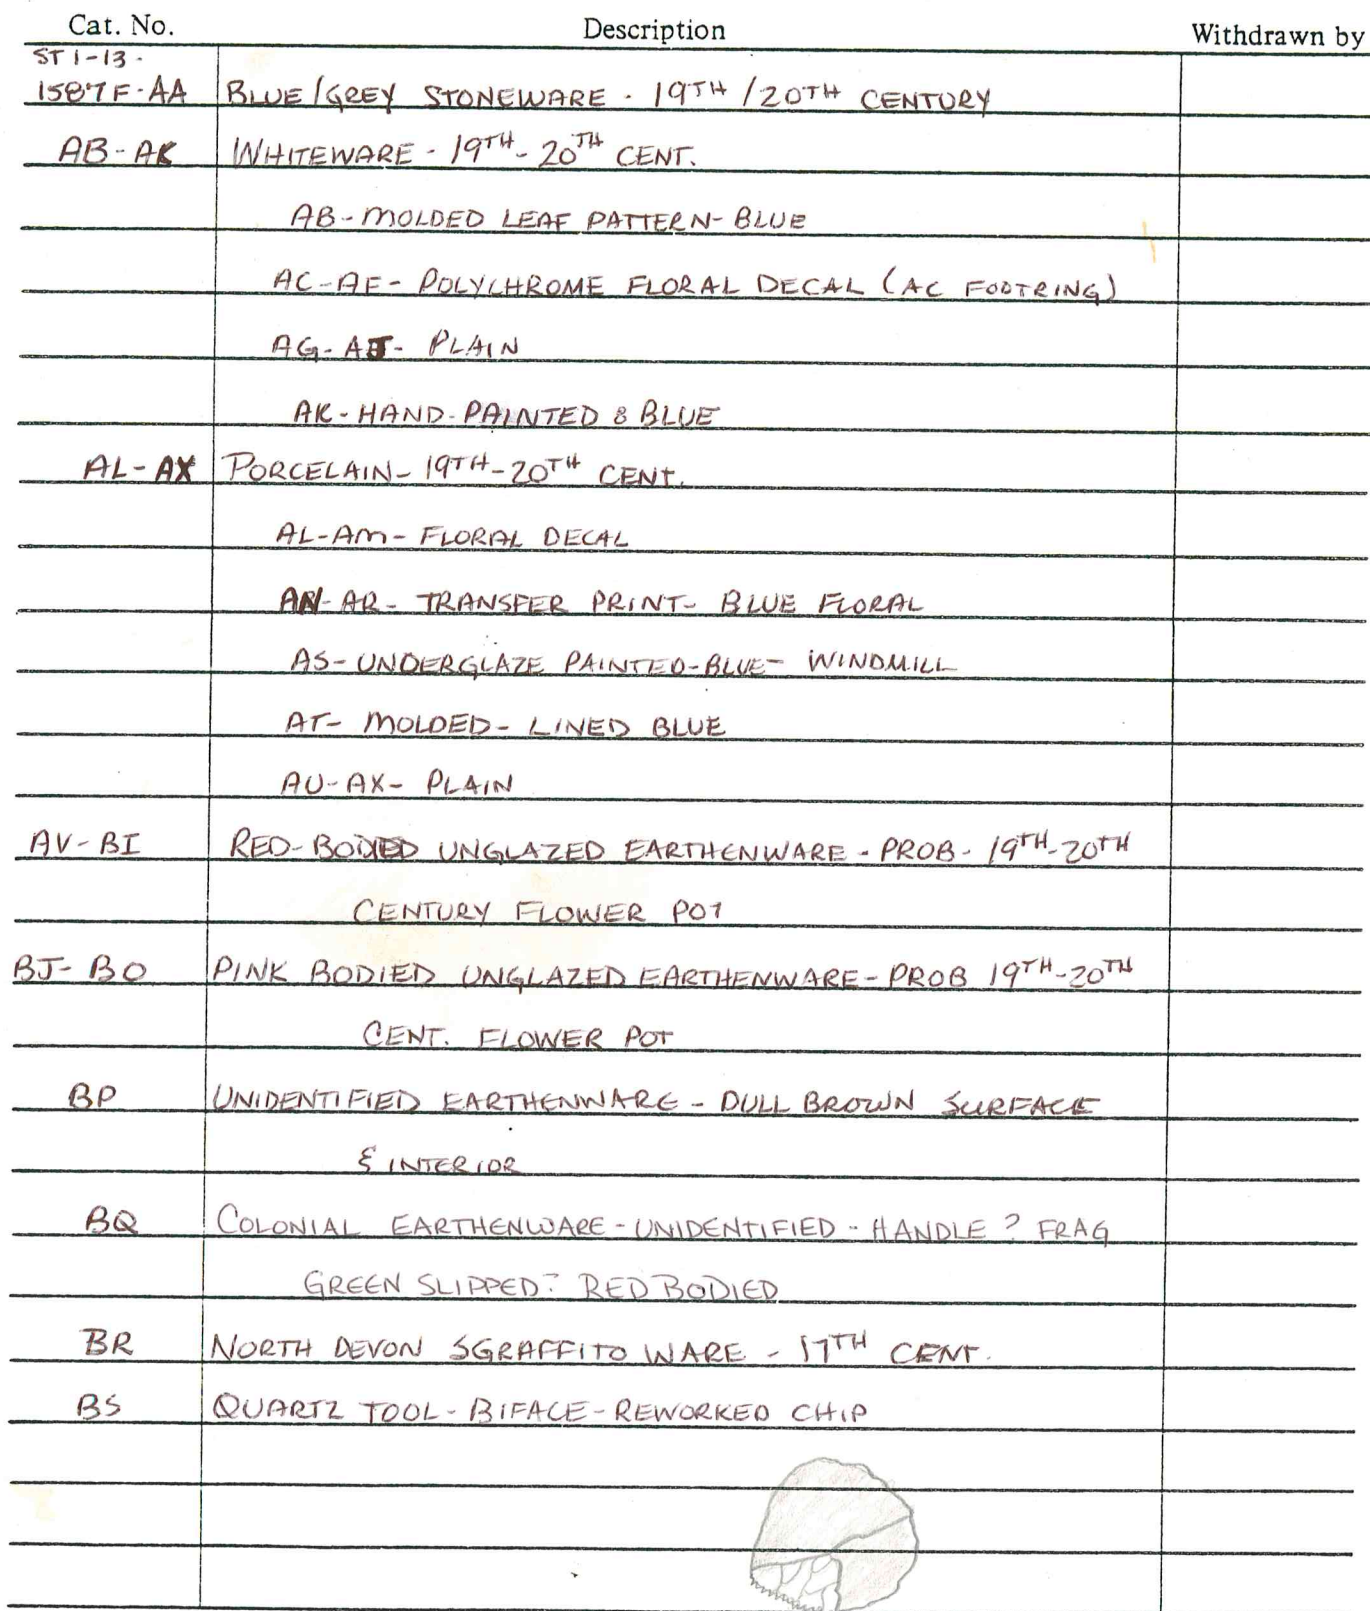 Cat. No. Description Withdrawn by
ST 1-13.
1587F-AA BLUE/GREY STONEWARE - 19TH/20TH CENTURY
AB-AK WHITEWARE - 19TH-20TH CENT.
AB-MOLDED LEAF PATTERN-BLUE
AC-AF- POLYCHROME FLORAL DECAL (AC FOOTRING)
AG-AJ- PLAIN
AK-HAND-PAINTED & BLUE
AL-AX PORCELAIN-19TH-20TH CENT.
AL-AM-FLORAL DECAL
AN-AR- TRANSFER PRINT- BLUE FLORAL
AS-UNDERGLAZE PAINTED-BLUE- WINDMILL
AT- MOLDED- LINED BLUE
AU-AX- PLAIN
AV-BI RED-BODIED UNGLAZED EARTHENWARE - PROB- 19TH-20TH
CENTURY FLOWER POT
BJ-BO PINK BODIED UNGLAZED EARTHENWARE-PROB 19TH-20TH
CENT. FLOWER POT
BP UNIDENTIFIED EARTHENWARE - DULL BROWN SURFACE
& INTERIOR
BQ COLONIAL EARTHENWARE-UNIDENTIFIED-HANDLE? FRAG
GREEN SLIPPED? RED BODIED
BR NORTH DEVON SGRAFFITO WARE - 17TH CENT.
BS QUARTZ TOOL-BIFACE-REWORKED CHIP